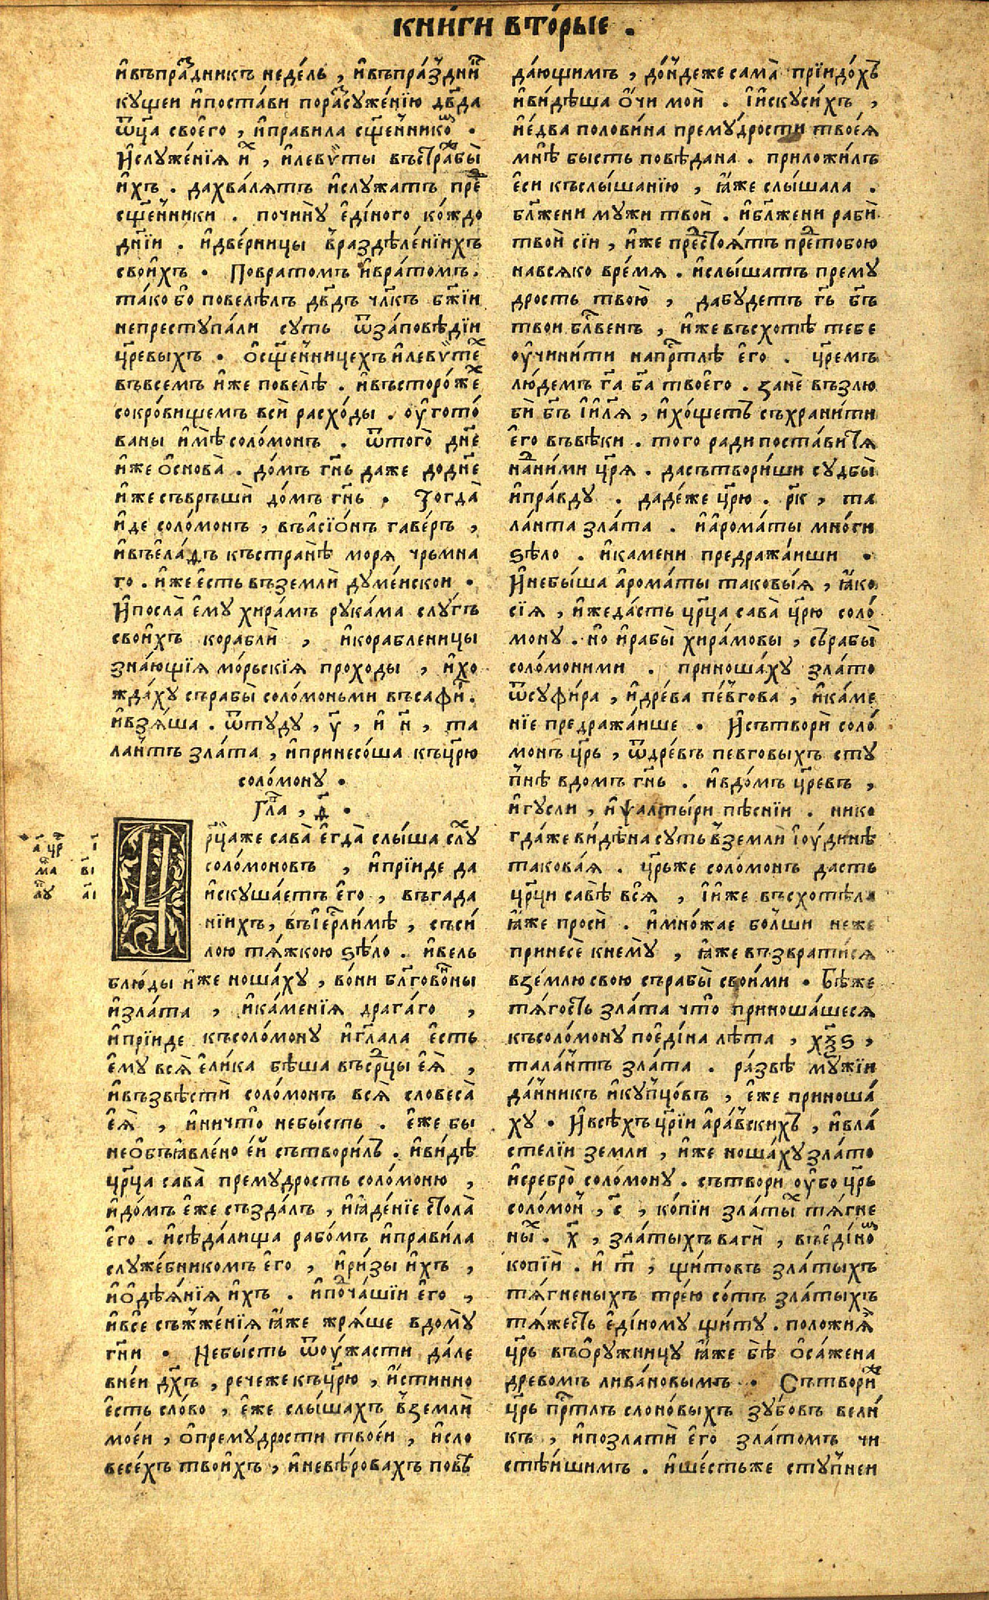 КНИ́ГИ ВТО́РЫЕ .
и҆въпра́здникъ неде́ль , и҆въпра́здни
кущеи и҆постави поразсуже́нїю дв҃да
ѿц҃а своего̀ , и҆правила сщ҃е́ннико .
И҆служе́нїѧ и҆х , и҆леѵгіты въстра́жбы̀
и҆́хъ . дахва́лѧтъ и҆слу́жатъ пре
сщ҃е́нники . почи́ну е҆ди́ного ко́ждо
дн҃їи . и҆две́рницы в̾раздѣле́нїихъ
свои́хъ . По́братомъ и҆бра́томъ .
та́ко бо повелѣ́лъ дв҃дъ чл҃къ бж҃їи
непреступали суть ѿза́повѣдїи
цр҃евыхъ . ѻ҆сщ҃е́нницехъ и҆левѵте
въвсемъ и҆же повелѣ̀ . и҆въсторо́же
сокро́вищемъ всѝ расхо́ды . ᲂу҆гото́
ваны и҆мѣ̀ соло́монъ . ѿтого̀ дн҃е
и҆же ѻ҆снова̀ . до́мъ гн҃ь даже додн҃е
и҆же съврьшѝ до́мъ гн҃ь . Тогда̀
и҆де соло́монъ , въа҆сїѡ́нъ гаве́ръ ,
и҆въе҆ла́дъ къстранѣ̀ морѧ чрьмна
го . и҆же е҆сть въземлѝ ду́меискои .
И҆посла̀ е҆му хира́мъ рука́ма слу́гъ
свои́хъ кораблѝ , и҆кораблени́цы
зна́ющїѧ мо́рьскїѧ прохо́ды , и҆хо
жда́ху сърабы̀ соло́моньми въсафи́ .
и҆взѧ́ша . ѿту́ду , у҃ , и҆ н҃ , та
ла́нтъ зла́та , и҆принесо́ша къцр҃ю
соло́мону .
Гла , д҃ .
Цр҃ц҃аже сава̀ е҆гда̀ слы́ша слу
соло́моновъ , и҆прїиде да
и҆скуша́етъ е҆го̀ , въгада
нїихъ , въі҆ер҃ли́мѣ , съси́
лою тѧ́жкою ѕѣло . и҆вель
блю́ды и҆же ноша́ху , во́ни бл҃гово́нны
и҆зла́та , и҆ка́менїѧ драга́го ,
и҆прїиде късоло́мону и҆гл҃ала е҆сть
е҆му всѧ̀ е҆ли́ка бѣ́ша въср҃цы е҆ѧ̀ ,
и҆възвѣстѝ соло́монъ всѧ̀ словеса̀
е҆ѧ̀ , и҆ничто̀ небы́сть . е҆же бы
неѻ҆бъꙗ҆вле́но е҆й сътвори́лъ . и҆ви́дѣ
цр҃ца сава̀ прему́дрость соло́моню ,
и҆до́мъ е҆́же създа́лъ , и҆ꙗ҆де́нїе стола̀
е҆го . и҆сѣда́лища рабо́мъ и҆прави́ла
служе́бникомъ е҆го , и҆ри́зы и҆хъ ,
и҆ѻ҆дѣѧ́нїѧ и҆хъ . и҆по́чашїи е҆го ,
и҆все съжже́нїѧ ꙗ҆же жрѧ́ше вдо́му
гн҃и . Небы́сть ѿᲂу҆́жасти да́ле
вне́и дх҃ъ , речеже къцр҃ю , и҆́стинно
е҆сть сло́во , е҆же слы́шахъ в̾землѝ
мое́и , ѻ҆прему́дрости твое́и , и҆сло
весе́хъ твои́хъ , и҆неве́ровахъ повѣ́
да́ющимъ , до́ндеже сама̀ прїидо́хъ
и҆ви́дѣша ѻ҆́чи моѝ . і҆и҆скуси́хъ ,
и҆е́два полови́на прему́дрости твое́ѧ
мнѣ̀ бысть повѣ́дана . приложи́лъ
е҆си къслы́шанїю , ꙗ҆же слы́шала .
бл҃же́ни му́жи твоѝ . и҆бл҃же́ни рабѝ
твоѝ сїи , и҆же пре́стоѧтъ пре́тобою
навсѧко вре́мѧ . и҆слы́шатъ прему
дрость твою̀ , дабу́детъ гь҃ бг҃ъ
твои бл҃ве́нъ , и҆же въсхотѣ̀ тебе
ᲂу҆чини́ти напр҃тлѣ̀ е҆го . цр҃емъ
лю́демъ га҃ ба҃ твоего . занѐ възлю
бѝ бг҃ъ і҆и҃лѧ , и҆хо́щетъ съхрани́ти
е҆го въвѣ́ки . того ради поста́ви тѧ
на́ними цр҃ѧ . дасътвори́ши судбы̀
и҆пра́вду . даде́же цр҃ю . рк҃ , та
ла́нта зла́та . и҆а҆рома́ты мно́ги
ѕѣло . и҆ка́мени предража́иши .
И҆небы́ша а҆рома́ты таковы́ѧ , ꙗ҆ко
сїѧ , и҆жеда́сть цр҃ца сава̀ цр҃ю соло
мону . но и҆рабы̀ хира́мовы , съ́рабы̀
соло́моними . приноша́ху зла́то
ѿсуфи́ра , и҆дре́ва пе́вгова , и҆ка́ме
нїе предража́ише . И҆сътвори̇ соло́
монъ цр҃ь , ѿдре́въ певговыхъ сту
пне́ вдомъ гн҃ь . и҆вдо́мъ цр҃евъ ,
и҆гусли , и҆ѱалты́ри пѣ́снїи . нико
гда́же ви́дѣна суть в̾землѝ і҆ᲂу҆динѣ
такова́ѧ . цр҃ьже соло́монъ дасть
цр҃ци савѣ̀ всѧ̀ , і҆и҆же въсхотѣ́ла
ꙗ҆же просѝ . и҆мно́жае бо́лши неже
принесѐ кнему̀ , ꙗ҆же възврати́сѧ
взе́млю свою̀ съ́рабы̀ свои́ми . Бѣ́же
тѧ́гость зла́та что̀ приноша́шесѧ
късоло́мону пое҆ди́на лѣта , хѯ҃ѕ ,
тала́нтъ зла́та . ра́звѣ му́жїи
да́нникъ и҆купцо́въ , е҆же приноша́
ху . И҆всѣхъ цр҃їи а҆ра́вскихъ , и҆вла́
стелїи земли , и҆же ноша́ху зла́то
и҆сребро̀ соло́мону . сътвори ᲂу҆́бо цр҃ь
соло́монъ , с҃ , ко́пїи злать́хъ тѧ́гне
ны . х҃ , зла́тыхъ вагѝ , въе҆ди́но
ко́пїи . и҆ т҃ , щи́товъ зла́тыхъ
тѧ́гненыхъ тре́ю со́тъ зла́тыхъ
тѧ́жесть е҆ди́ному щи́ту . положиѧ̀
цр҃ь въѻ҆ру́жницу ꙗ҆же бѣ̀ ѻ҆са́жена
древомъ лива́новымъ . Сътвори
цр҃ь пр҃тлъ слоно́выхъ зу́бовъ вели́
къ , и҆позлатѝ е҆го зла́томъ чи
стѣ́ишимъ . и҆ше́стьже сту́пнеи